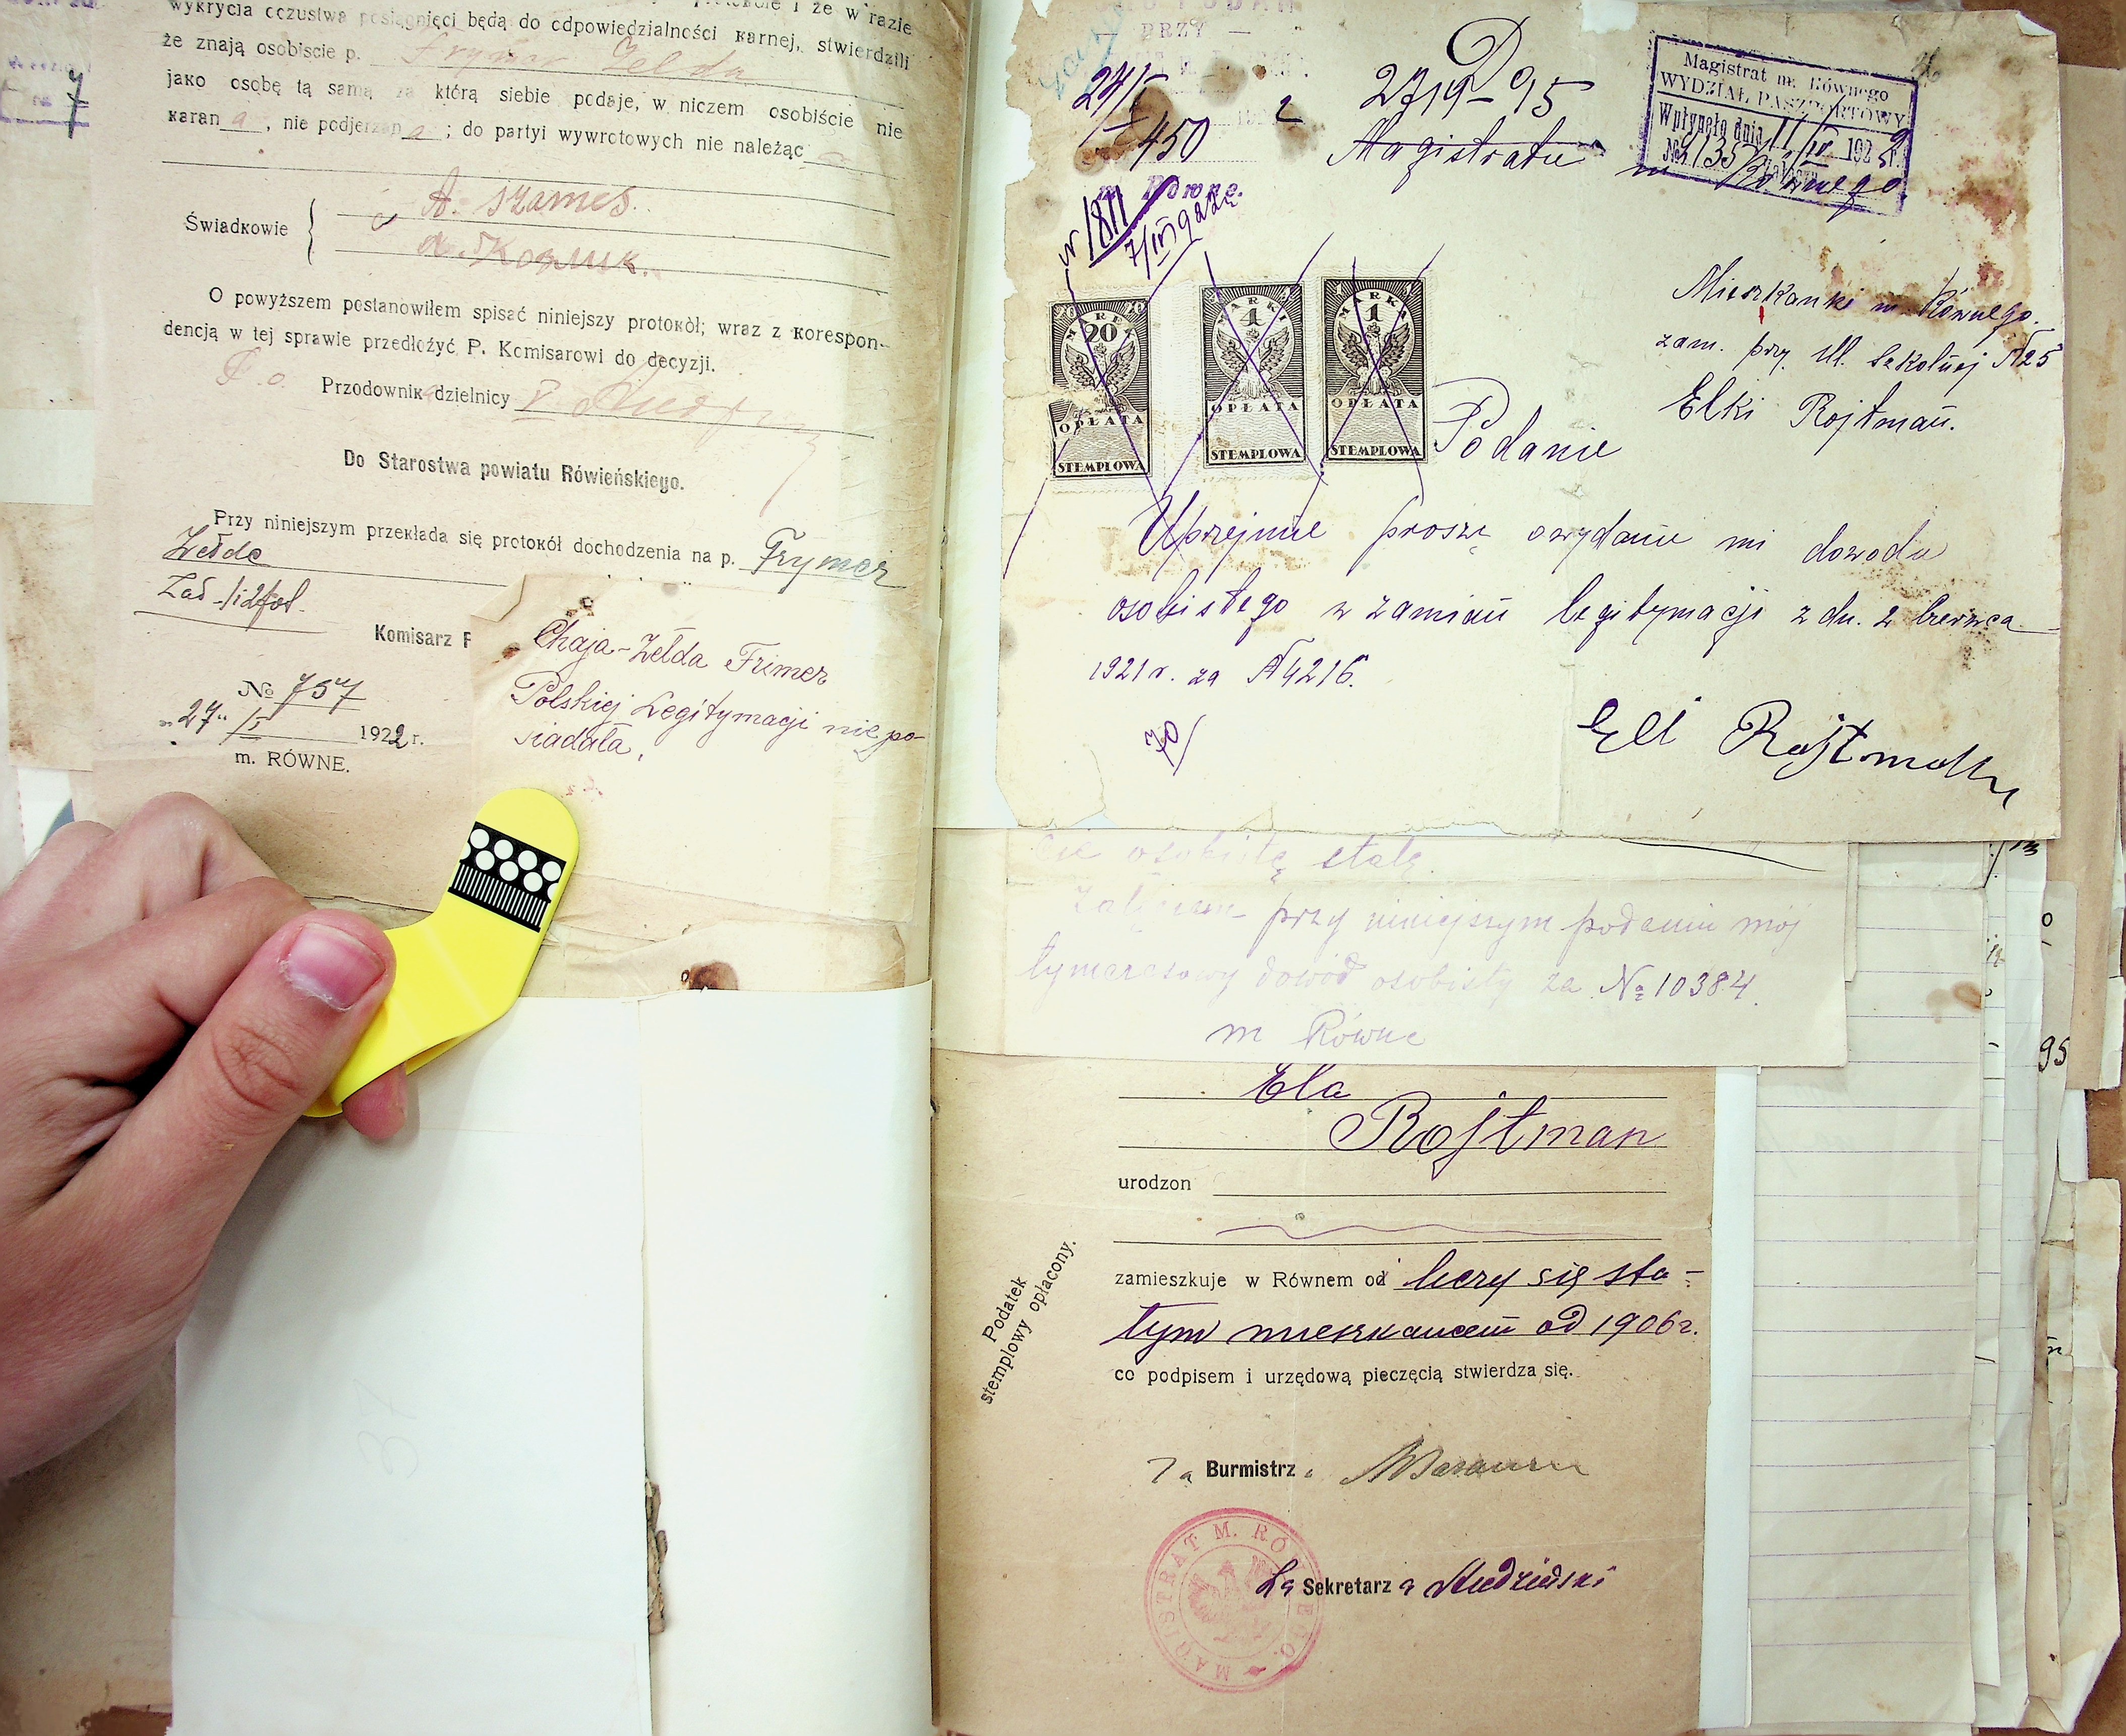 wykrycia oczustwa posiągnięci będą do odpowiedzialności karnej, stwierdzili
że znają osobiscie p. Frymer Zelda
jako osobę tą samą za którą siebie podaje, w niczem osobiście nie
karan a, nie podjerzan a; do partyi wywrotowych nie należąc
Świadkowie
A. Szames.
O powyższem postanowiłem spisać niniejszy protokół; wraz z korespon-
dencją w tej sprawie przedłożyć P. Komisarowi do decyzji.
Przodownik dzielnicy V
Do Starostwa powiatu Rówieńskiego.
Przy niniejszym przekłada się protokół dochodzenia na p. Frymer
Zełde
Komisarz P
№ 757
27 / I 1922 r.
m. RÓWNE.
Chaja-Zełda Frimer
Polskiej Legitymacji nie po-
siadała.
PRZY
24/I
450
2719-95
Magistratu m Równego
Magistrat m. Równego
WYDZIAŁ PASZPORTOWY
Wpłynęło dnia 11/IV 192
Równe.
№ 1811
20 MAREK 20
OPŁATA
STEMPLOWA
4 MARKI 4
OPŁATA
STEMPLOWA
1 MARKA 1
OPŁATA
STEMPLOWA
Mieszkanki m. Równego.
zam. przy ul. Szkolnej № 25
Elki Rojtman.
Podanie
Uprzejmie proszę o wydanie mi dowodu
osobistego w zamian legitymacji z dn. 2 czerwca
1921 r. za № 4216.
70/
Ell Rojtman
cie osobistę stałę.
Załączam przy niniejszym podaniu mój
tymczasowy dowód osobisty za № 10384.
m Równe
Ela
Rojtman
urodzon
zamieszkuje w Równem od liczy się sta-
łym mieszkańcem od 1906 r.
co podpisem i urzędową pieczęcią stwierdza się.
Podatek
stemplowy opłacony.
Za Burmistrza
MAGISTRAT M. RÓWNEGO
Za Sekretarza